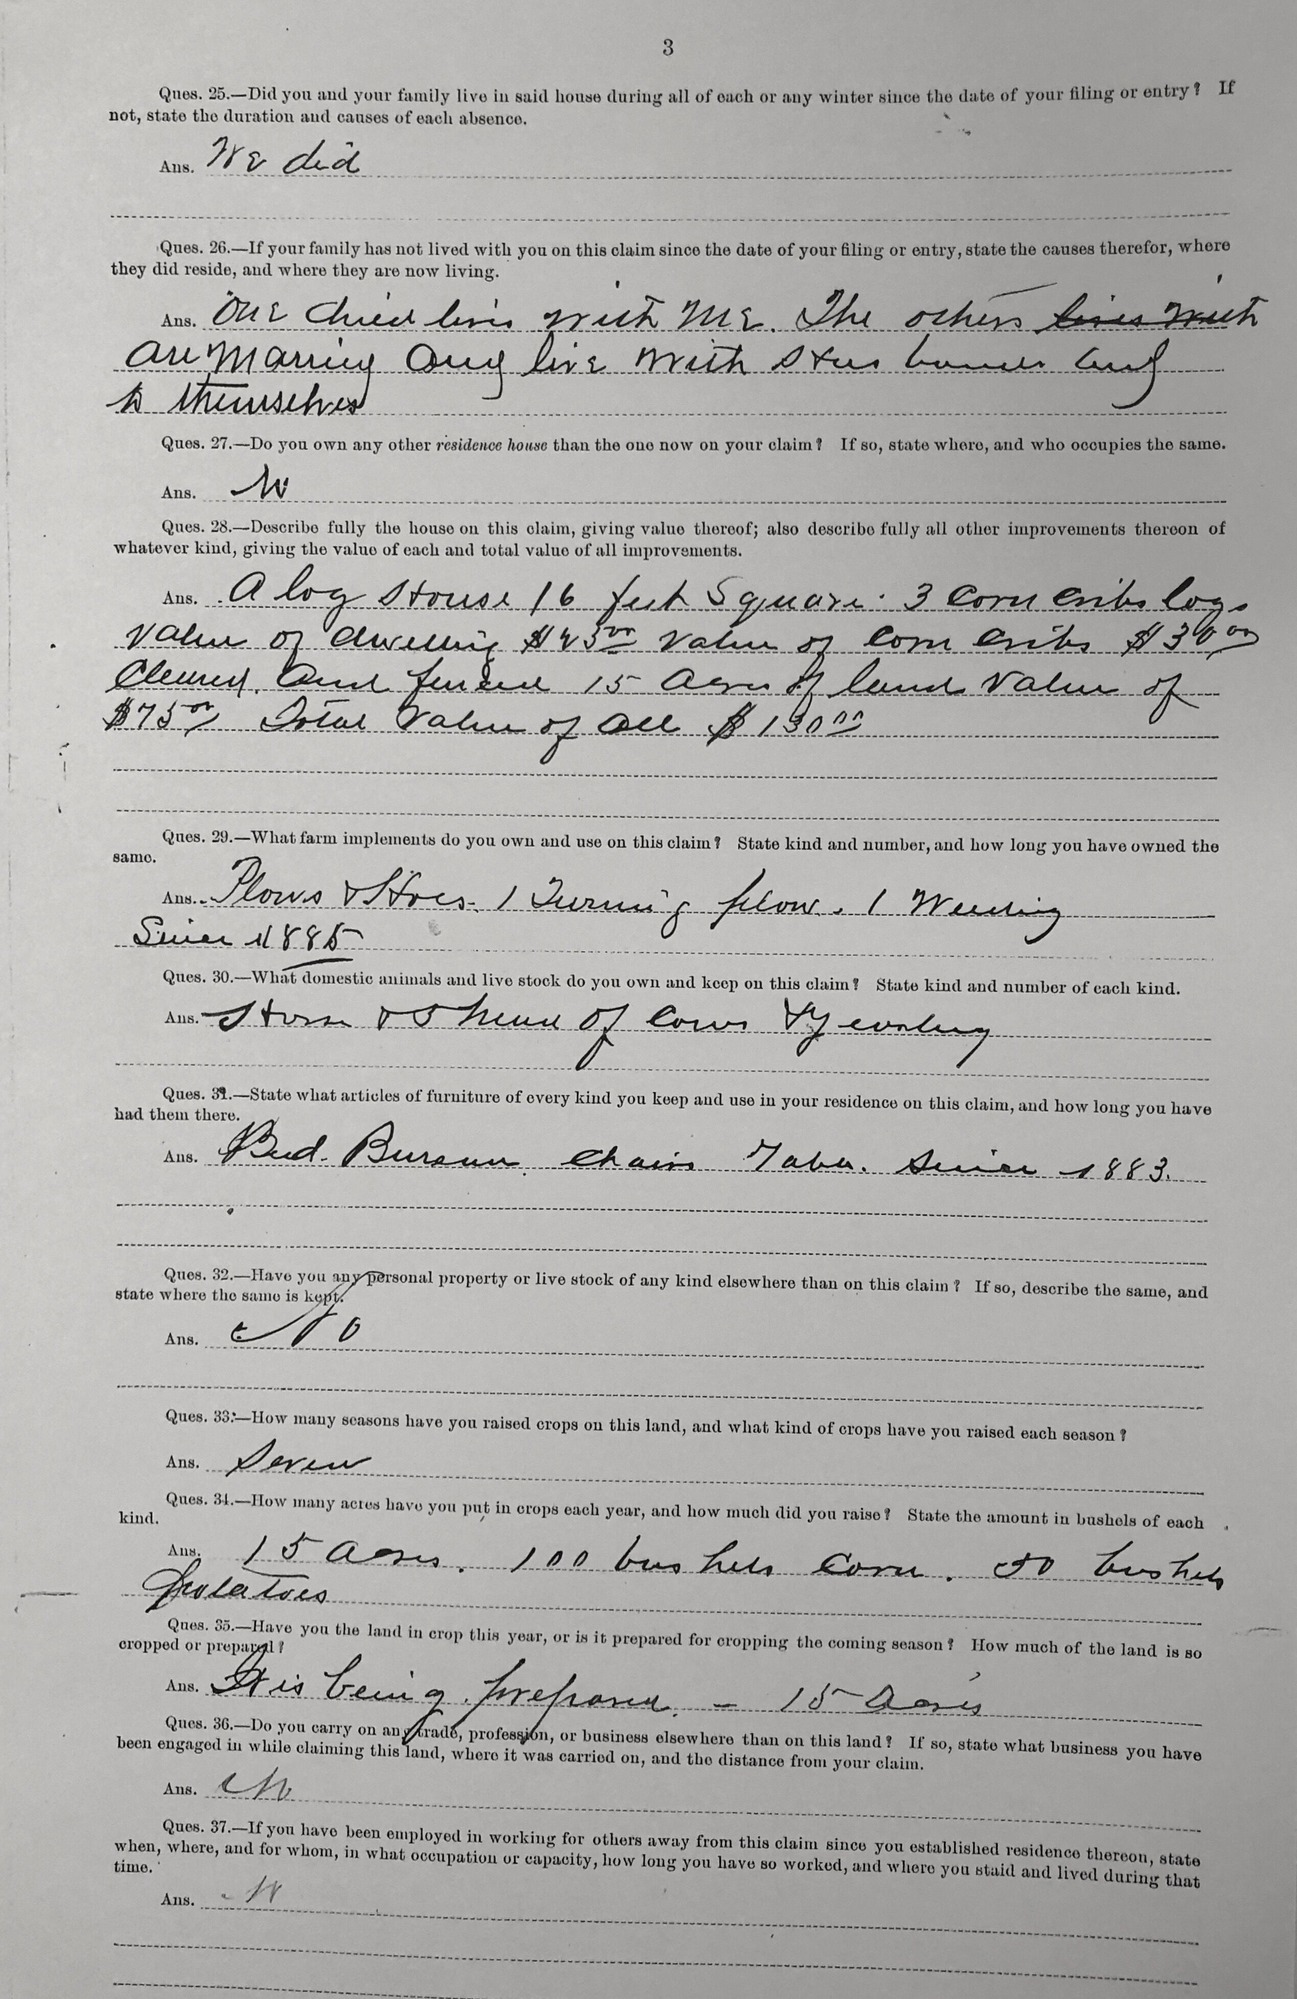 3
Ques. 25.—Did you and your family live in said house during all of each or any winter since the date of your filing or entry? If
not, state the duration and causes of each absence.
Ans. We did
Ques. 26.—If your family has not lived with you on this claim since the date of your filing or entry, state the causes therefor, where
they did reside, and where they are now living.
Ans. One child livis with Me. The others lives with
are Marrid and live with and
to themselves
Ques. 27.—Do you own any other residence house than the one now on your claim? If so, state where, and who occupies the same.
Ans. No
Ques. 28.—Describe fully the house on this claim, giving value thereof; also describe fully all other improvements thereon of
whatever kind, giving the value of each and total value of all improvements.
Ans. A log House 16 feet Square. 3 Corn Cribs logs
Value of dwelling Value of Corn Cribs $30 00
Cleared. And fenced 15 Acres of land Value of
$75 00 Total Value of all $130 00
Ques. 29.—What farm implements do you own and use on this claim? State kind and number, and how long you have owned the
same.
Ans. Plows & Hoes. 1 Turning plow. 1 Weeding
Since 1885
Ques. 30.—What domestic animals and live stock do you own and keep on this claim? State kind and number of each kind.
Ans. Horse & 5 head of Cows & yearling
Ques. 31.—State what articles of furniture of every kind you keep and use in your residence on this claim, and how long you have
had them there.
Ans. Bed. Bureau. Chairs Table. Since 1883.
Ques. 32.—Have you any personal property or live stock of any kind elsewhere than on this claim? If so, describe the same, and
state where the same is kept.
Ans. No
Ques. 33.—How many seasons have you raised crops on this land, and what kind of crops have you raised each season?
Ans. Seven
Ques. 34.—How many acres have you put in crops each year, and how much did you raise? State the amount in bushels of each
kind.
Ans. 15 Acres. 100 bushels Corn. 50 bushels
potatoes
Ques. 35.—Have you the land in crop this year, or is it prepared for cropping the coming season? How much of the land is so
cropped or prepared?
Ans. It is being prepared. – 15 Acres
Ques. 36.—Do you carry on any trade, profession, or business elsewhere than on this land? If so, state what business you have
been engaged in while claiming this land, where it was carried on, and the distance from your claim.
Ans. No
Ques. 37.—If you have been employed in working for others away from this claim since you established residence thereon, state
when, where, and for whom, in what occupation or capacity, how long you have so worked, and where you staid and lived during that
time.
Ans. No